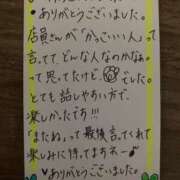 ありがとうございました。
店員さんが「かっこいい人」と
言ってて、どんな人なのかなぁ。
って思ってたけど、でした。
とても話しやすい方で、
楽しかったです!!
「またね」って最後言ってくれて
楽しみに待ってますネー♪
ありがとうございました。